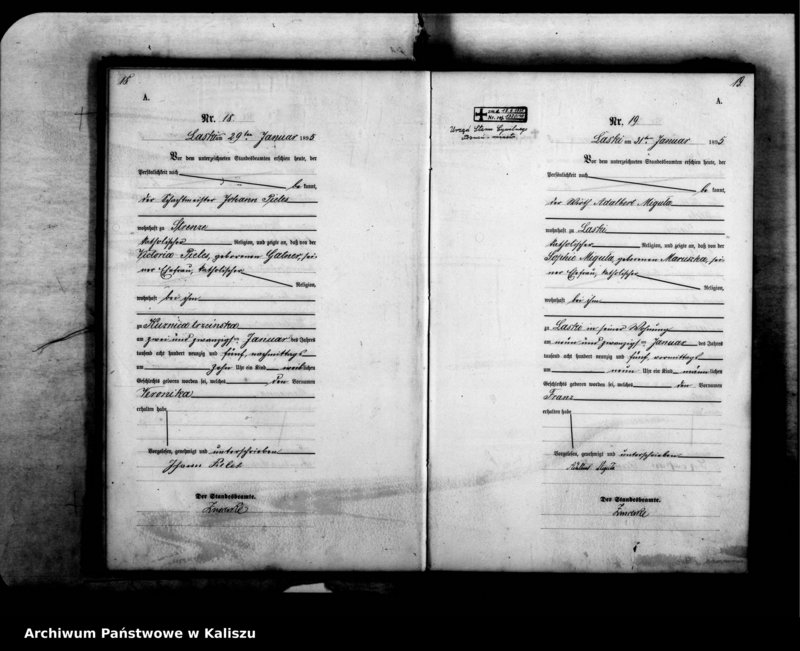 18
A.
Nr. 18.
Laski am 29ten Januar 1895
Vor dem unterzeichneten Standesbeamten erschien heute, der
Persönlichkeit nach
be kannt,
der Johann Pieles
wohnhaft zu
katholischer Religion, und zeigte an, daß von der
Victoria Pieles, geborenen sei-
ner Ehefrau, katholischer
Religion,
wohnhaft bei ihm
zu Kuznica
am zwei und zwanzigsten Januar des Jahres
tausend acht hundert neunzig und fünf, nachmittags
um zehn Uhr ein Kind weibliches
Geschlechts geboren worden sei, welches den Vornamen
Veronika
erhalten habe
Vorgelesen, genehmigt und unterschrieben
Johann
Der Standesbeamte.
19
A.
Nr. 19
Laski am 31ten Januar 1895
Vor dem unterzeichneten Standesbeamten erschien heute, der
Persönlichkeit nach
be kannt,
der Wirth Adalbert Migula
wohnhaft zu Laski
katholischer Religion, und zeigte an, daß von der
Sophie Migula, geborenen Maruszka, sei-
ner Ehefrau, katholischer
Religion,
wohnhaft bei ihm
zu Laski in seiner Wohnung
am neun und zwanzigsten Januar des Jahres
tausend acht hundert neunzig und fünf, vormittags
um neun Uhr ein Kind männliches
Geschlechts geboren worden sei, welches den Vornamen
Franz
erhalten habe
Vorgelesen, genehmigt und unterschrieben
Migula
Der Standesbeamte.
Archiwum Państwowe w Kaliszu